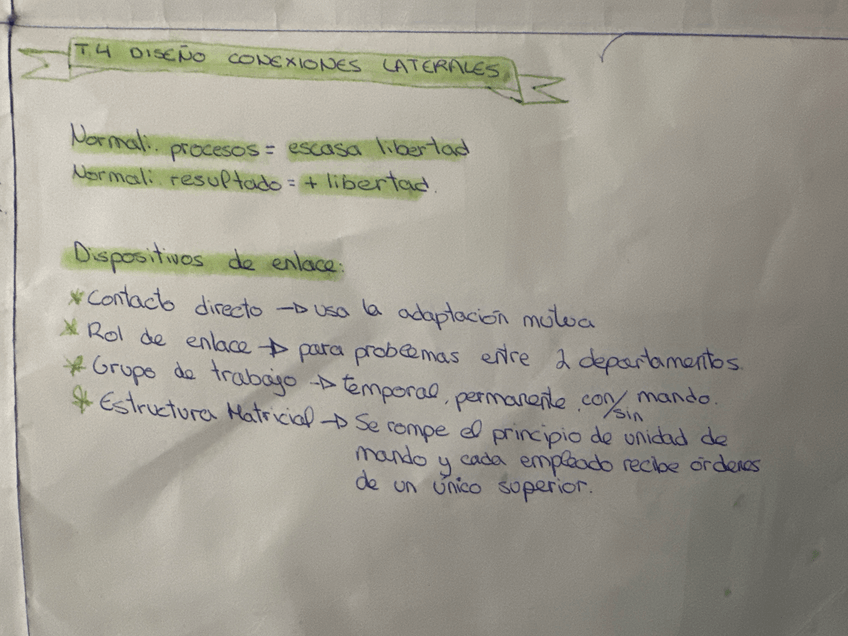 T.4 DISEÑO CONEXIONES LATERALES
Normali. procesos = escasa libertad
Normali. resultado = + libertad.
Dispositivos de enlace:
* Contacto directo → usa la adaptación mutua
* Rol de enlace → para problemas entre 2 departamentos.
* Grupo de trabajo → temporal, permanente, con/sin mando.
* Estructura Matricial → Se rompe el principio de unidad de
mando y cada empleado recibe órdenes
de un único superior.